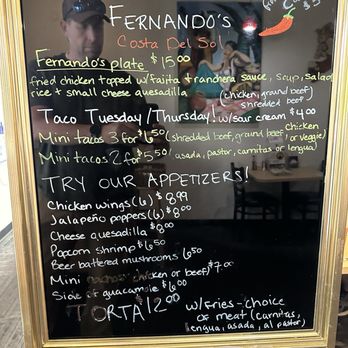 FERNANDO'S
Costa Del Sol
Fernando's plate $15.00
fried chicken topped w/fajita + ranchera sauce, soup, salad
rice + small cheese quesadilla
Taco Tuesday/Thursday! (chicken, ground beef, shredded beef) w/sour cream $4.00
Mini tacos 3 for $6.50 (shredded beef, ground beef, chicken or veggie)
Mini tacos 2 for $5.50 / asada, pastor, carnitas or lengua)
TRY OUR APPETIZERS!
Chicken wings (6) $8.99
Jalapeño poppers (6) $8.00
Cheese quesadilla $8.00
Popcorn shrimp $6.50
Beer battered mushrooms 6.50
Mini nachos chicken or beef) $7.00
Side of guacamole $6.00
TORTA $12.00 w/fries - choice
of meat (carnitas,
lengua, asada, al pastor)